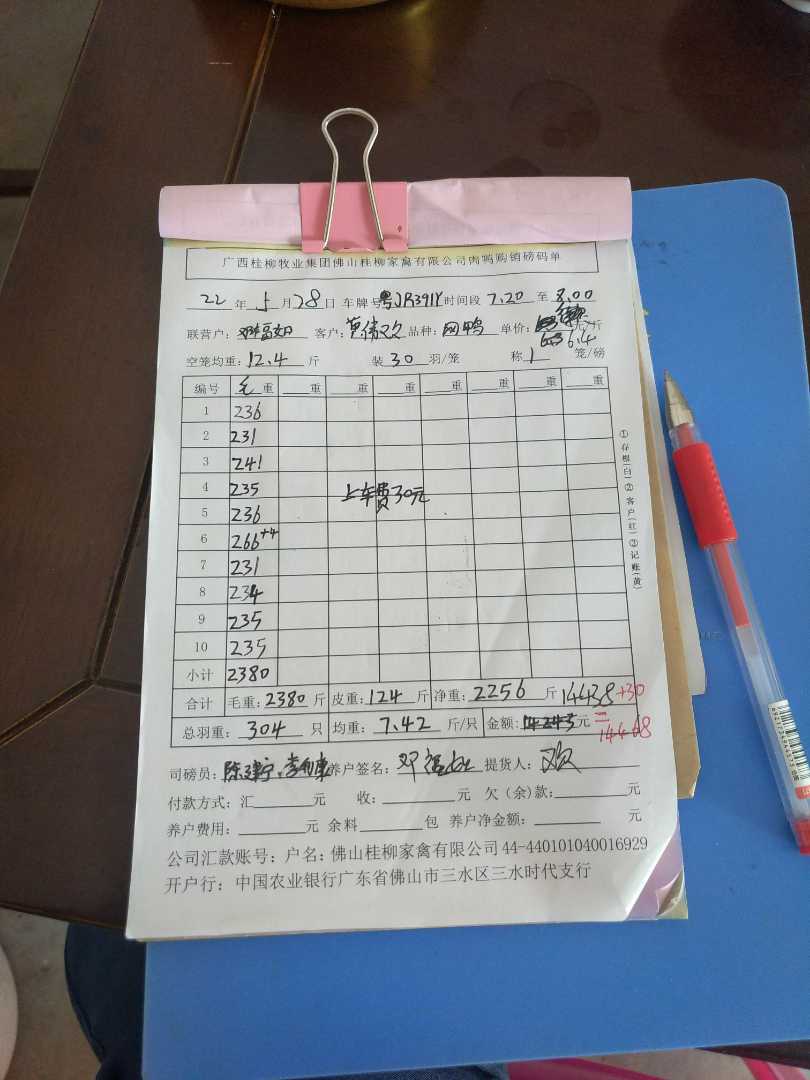 广西桂柳牧业集团佛山桂柳家禽有限公司肉鸭购销磅码单
22 年 5 月 28 日 车牌号 粤JR391Y 时间段 7.20 至 8.00
联营户: 客户: 品种: 网鸭 单价: 6.4 元/斤
空笼均重: 12.4 斤 装 30 羽/笼 称 1 笼/磅
编号 毛重 重 重 重 重 重 重 重
1 236
2 231
3 241
4 235 上车费30元
5 236
6 266+4
7 231
8 234
9 235
10 235
小计 2380
合计 毛重: 2380 斤 皮重: 124 斤 净重: 2256 斤 14438+30
总羽重: 304 只 均重: 7.42 斤/只 金额: 元 =14468
司磅员: 养户签名: 邓 提货人:
付款方式: 汇 元 收: 元 欠(余)款: 元
养户费用: 元 余料 包 养户净金额: 元
公司汇款账号: 户名: 佛山桂柳家禽有限公司 44-440101040016929
开户行: 中国农业银行广东省佛山市三水区三水时代支行
①存根(白)②客户(红)③记账(黄)